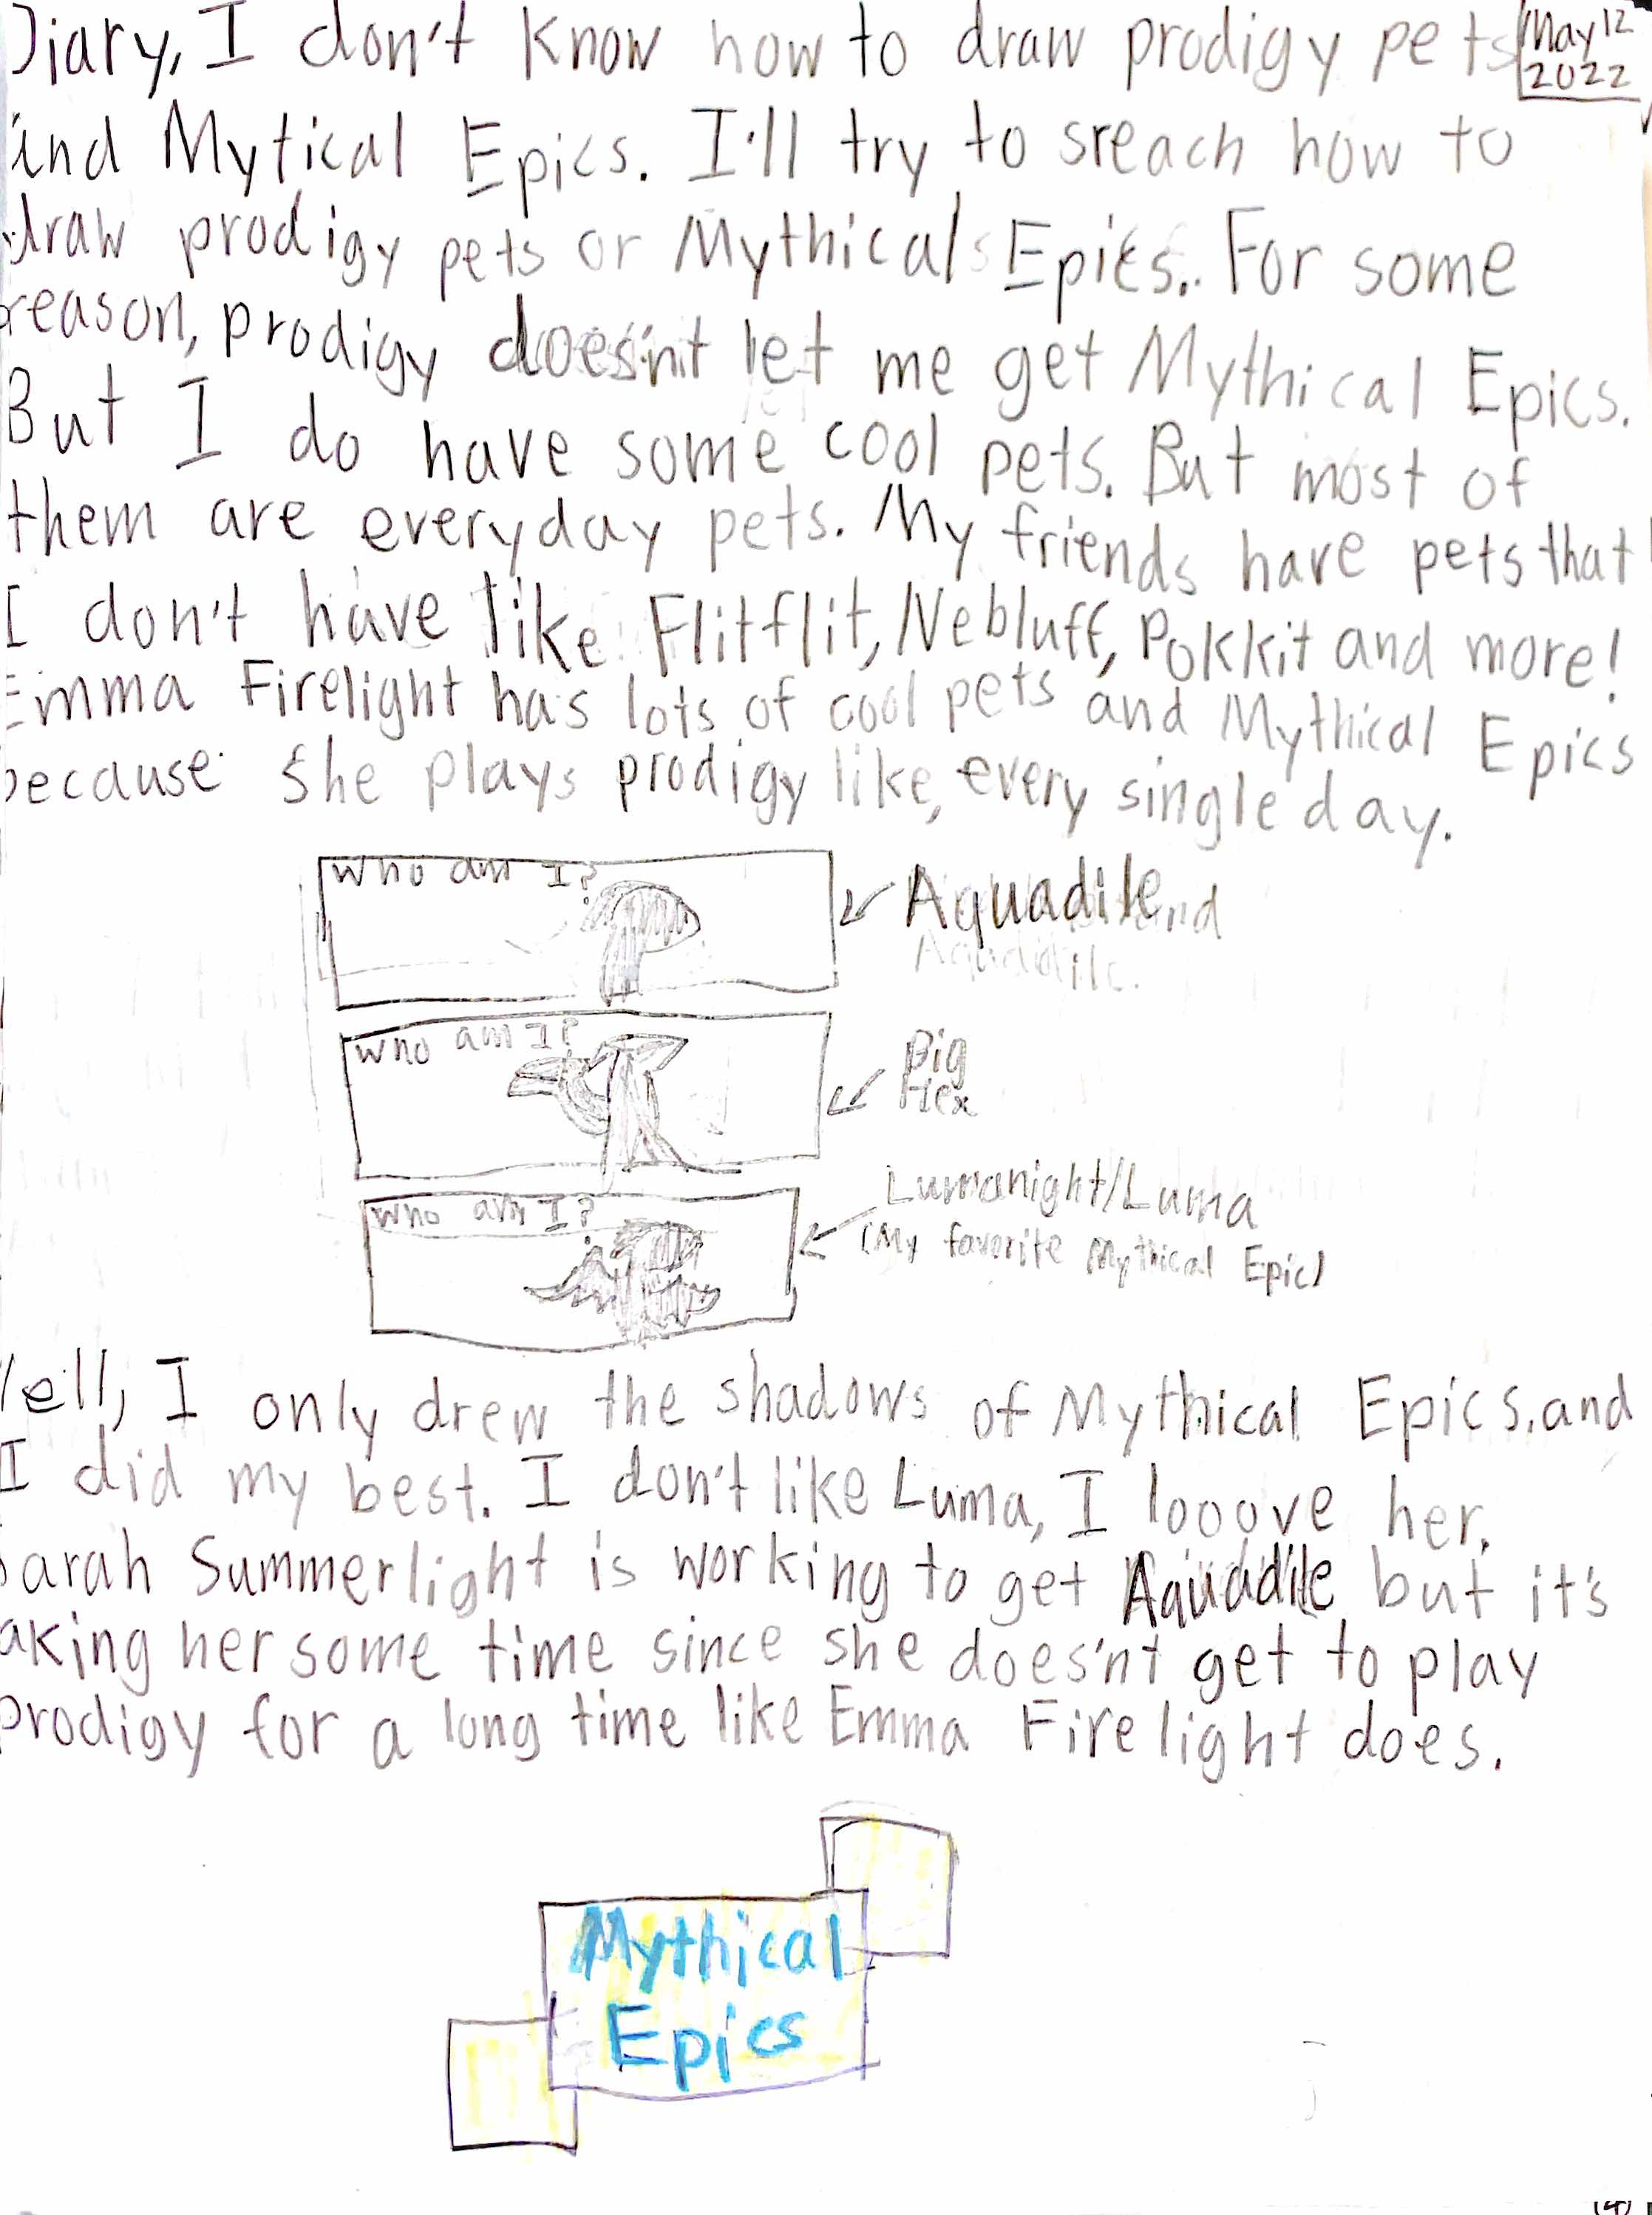 Diary, I don't know how to draw prodigy pets
May 12
2022
and Mytical Epics. I'll try to sreach how to
draw prodigy pets or Mythical Epics. For some
reason, prodigy does'nt let me get Mythical Epics.
But I do have some cool pets. But most of
them are everyday pets. My friends have pets that
I don't have like Flitflit, Nebluff, Pokkit and more!
Emma Firelight has lots of cool pets and Mythical Epics
because she plays prodigy like, every single day.
Who am I?
Aquadile
Who am I?
Big
Hex
Who am I?
Lumanight/Luma
(My favorite Mythical Epic)
Well, I only drew the shadows of Mythical Epics, and
I did my best. I don't like Luma, I looove her.
Sarah Summerlight is working to get Aquadile but it's
taking her some time since she does'nt get to play
prodigy for a long time like Emma Firelight does.
Mythical
Epics